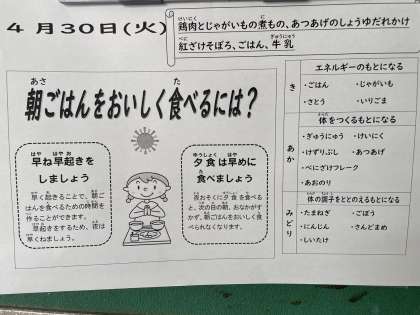 4月30日(火)
鶏肉とじゃがいもの煮もの、あつあげのしょうゆだれかけ
紅ざけそぼろ、ごはん、牛乳
朝ごはんをおいしく食べるには?
早ね早起きを
しましょう
早く起きることで、朝ご
はんを食べるための時間を
作ることができます。
早起きをするため、夜は
早くねましょう。
夕食は早めに
食べましょう
夜おそくに夕食を食べる
と、次の日の朝、おなかがす
かず、朝ごはんをおいしく食
べられなくなります。
き
エネルギーのもとになる
・ごはん ・じゃがいも
・さとう ・いりごま
あか
体をつくるもとになる
・ぎゅうにゅう ・けいにく
・けずりぶし ・あつあげ
・べにざけフレーク
・あおのり
みどり
体の調子をととのえるもとになる
・たまねぎ ・ごぼう
・にんじん ・さんどまめ
・しいたけ